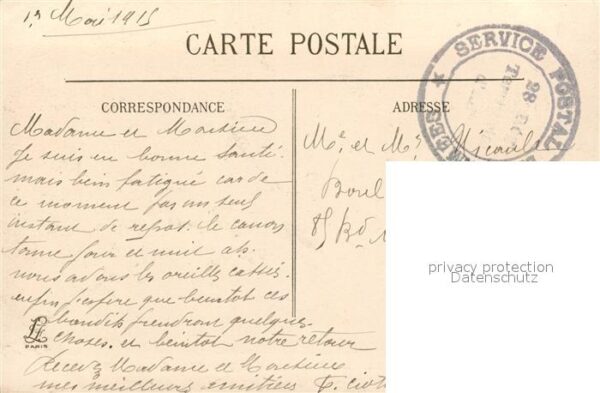 Mai 1915
CARTE POSTALE
SERVICE POSTAL
28
CORRESPONDANCE
ADRESSE
Madame et Monsieur
Je suis en bonne santé.
mais bien fatigué car de
ce moment pas un seul
instant de repos. le canon
tonne jour et nuit
nous avons les oreilles cassés.
enfin j'espère que bientot ces
bandits prendront quelque
choses. et bientot notre retour
Recevez Madame et Monsieur
mes meilleurs amitiées
Me et Mr
85 Bd
LL
PARIS
privacy protection
Datenschutz